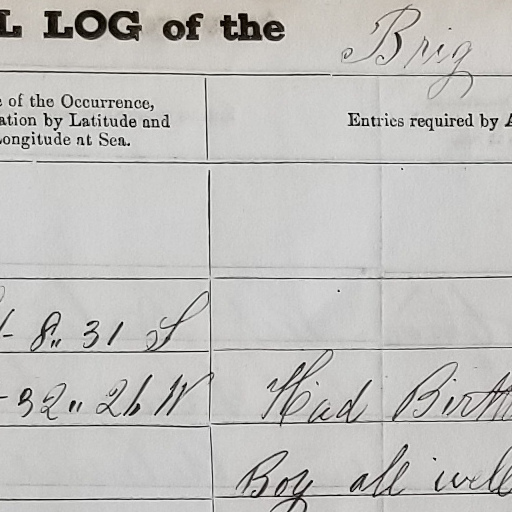 L LOG of the Brig
e of the Occurrence,
ation by Latitude and
ongitude at Sea.
Entries required by A
8,, 31 S
32,, 26 W
Had Birth
Boy all well